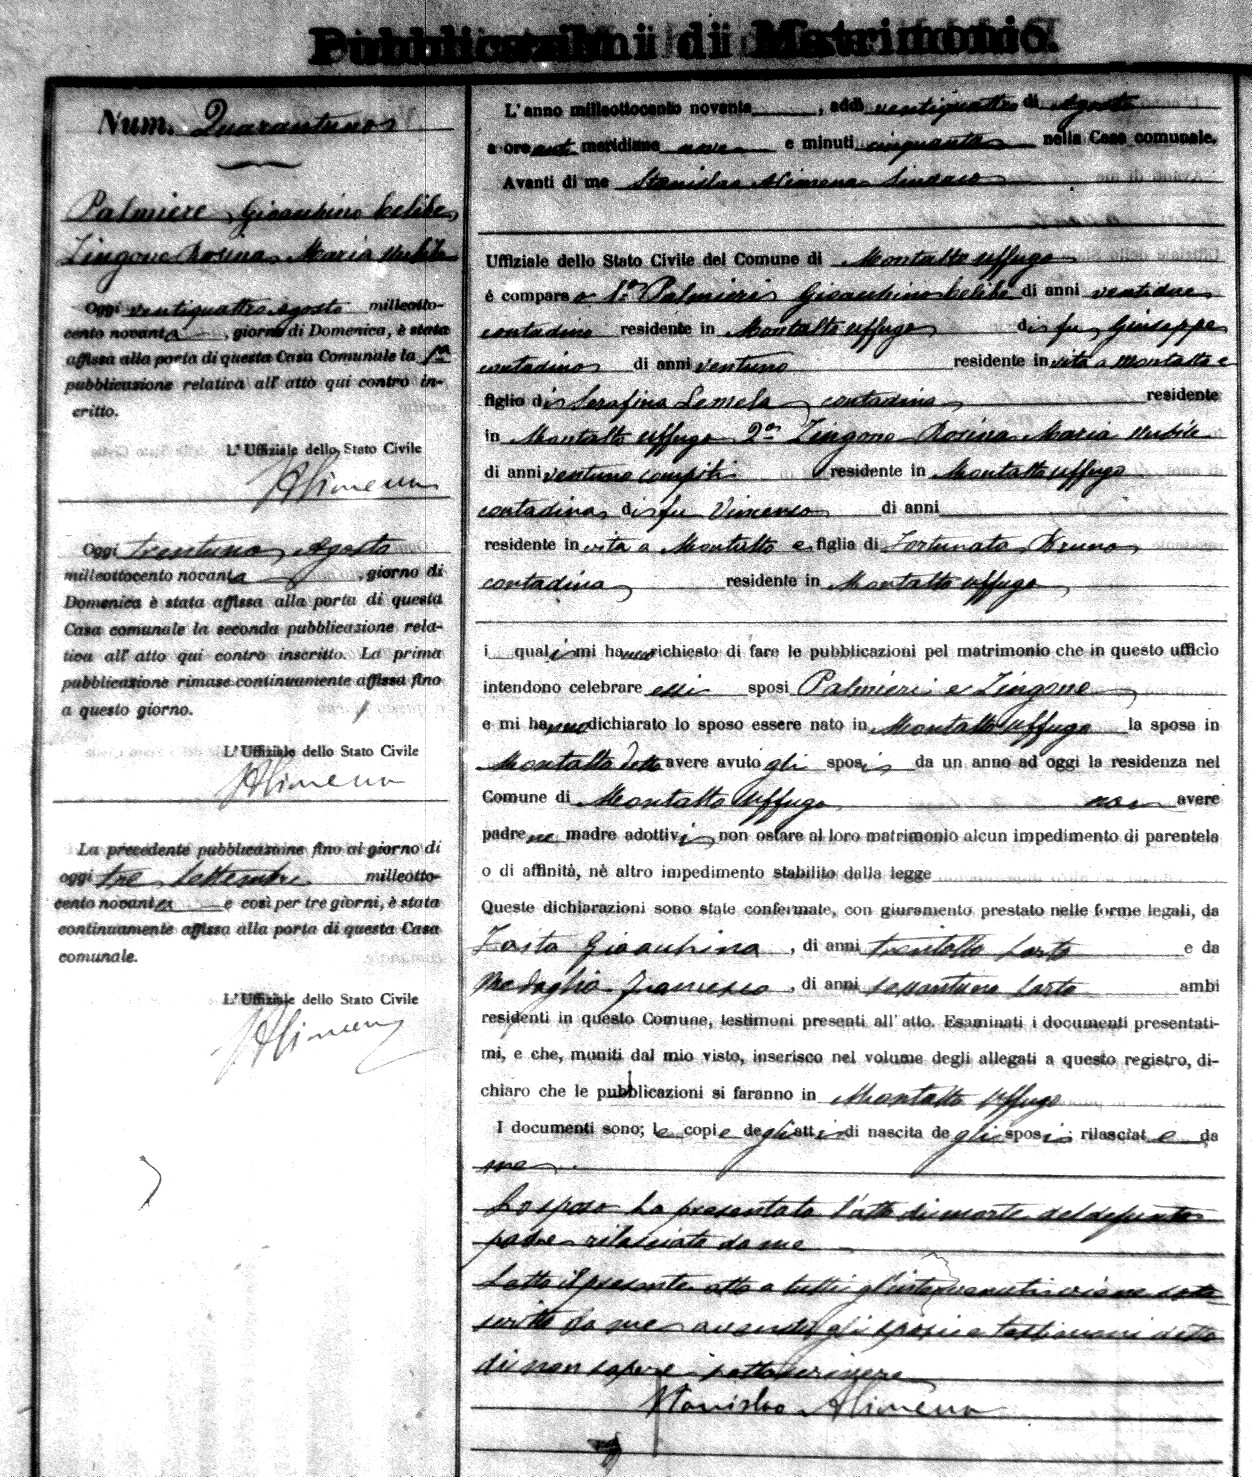 Pubblicazioni di Matrimonio.
Num. Quarantuno
Palmieri Gioacchino celibe
Zingone Rosina Maria nubile
Oggi ventiquattro agosto milleotto-
cento novanta, giorno di Domenica, è stata
affissa alla porta di questa Casa Comunale la 1ª
pubblicazione relativa all' atto qui contro in-
critto.
L'Uffiziale dello Stato Civile
SAlimena
Oggi trentuno Agosto
milleottocento novanta, giorno di
Domenica è stata affissa alla porta di questa
Casa comunale la seconda pubblicazione rela-
tiva all' atto qui contro inscritto. La prima
pubblicazione rimase continuamente affissa fino
a questo giorno.
L'Uffiziale dello Stato Civile
SAlimena
La precedente pubblicazione fino al giorno di
oggi tre Settembre milleotto-
cento novanta e così per tre giorni, è stata
continuamente affissa alla porta di questa Casa
comunale.
L'Uffiziale dello Stato Civile
SAlimena
L'anno milleottocento novanta, addì ventiquattro di Agosto
a ore anti meridiane nove e minuti cinquanta nella Casa comunale.
Avanti di me Stanislao Alimena Sindaco
Uffiziale dello Stato Civile del Comune di Montalto Uffugo
è comparso 1º Palmieri Gioacchino celibe di anni ventidue
contadino residente in Montalto Uffugo di fu Giuseppe
contadino di anni ventuno residente in vita a Montalto e
figlio di Serafina contadina residente
in Montalto Uffugo 2º Zingone Rosina Maria nubile
di anni ventuno compiti residente in Montalto Uffugo
contadina di fu Vincenzo di anni
residente in vita a Montalto e figlia di Fortunata Bruno
contadina residente in Montalto Uffugo
i quali mi hanno richiesto di fare le pubblicazioni pel matrimonio che in questo ufficio
intendono celebrare essi sposi Palmieri e Zingone
e mi hanno dichiarato lo sposo essere nato in Montalto Uffugo la sposa in
Montalto detto avere avuto gli sposi da un anno ad oggi la residenza nel
Comune di Montalto Uffugo non avere
padre ne madre adottivi non ostare al loro matrimonio alcun impedimento di parentela
o di affinità, nè altro impedimento stabilito dalla legge
Queste dichiarazioni sono state confermate, con giuramento prestato nelle forme legali, da
Gioacchino, di anni trentotto sarto e da
Medaglia Francesco, di anni sessantuno sarto ambi
residenti in questo Comune, testimoni presenti all' atto. Esaminati i documenti presentati-
mi, e che, muniti dal mio visto, inserisco nel volume degli allegati a questo registro, di-
chiaro che le pubblicazioni si faranno in Montalto Uffugo
I documenti sono; le copie degli atti di nascita degli sposi rilasciate da
me.
Lo sposo ha presentato l'atto di morte del defunto
padre rilasciato da me
Letto il presente atto a tutti gl'intervenuti viene sotto
scritto da me avendo gli sposi e testimoni detto
di non sapere sottoscrivere
Stanislao Alimena